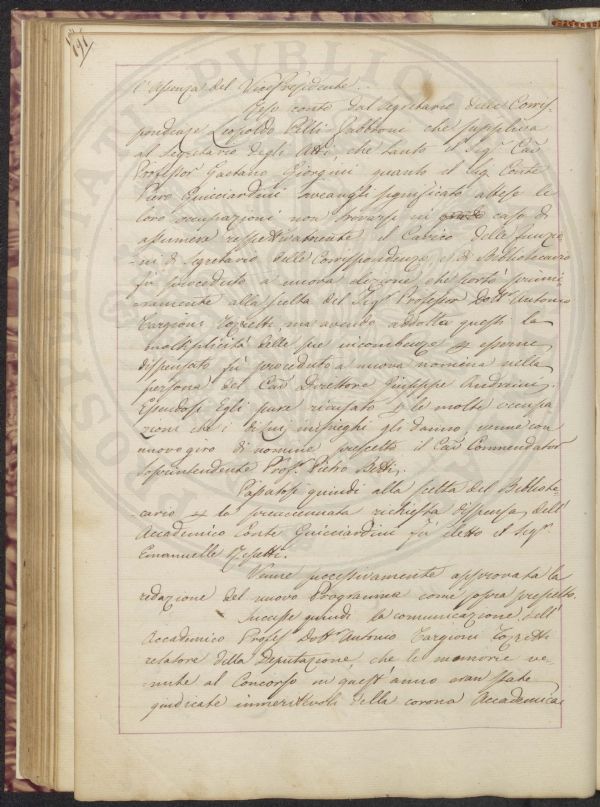 191
l'assenza del Vice Presidente.
Reso conto dal Segretario delle Corris-
pondenze Leopoldo Pelli-Fabbroni che supplisce
al Segretario degli Atti, che tanto il Sig.r Cav.
Professor Gaetano Giorgini quanto il Sig. Conte
Piero Guicciardini aveangli significato attese le
loro occupazioni non trovarsi in caso di
assumere respettivamente il Carico delle funzio-
ni di Segretario delle Corrispondenze, e di Bibliotecario
fù proceduto a nuova elezione, che portò primi-
eramente alla scelta del Sig.r Professor Dott.r Antonio
Targioni Tozzetti, ma avendo addotta questi la
moltiplicità delle sue incombenze p esserne
dispensato fù proceduto a nuova nomina nella
persona del Cav. Direttore Giuseppe Andreini.
Essendosi Egli pure ricusato p le molte occupa
zioni che i suoi impieghi gli danno venne con
nuovo giro di nomine prescelto il Cav. Commendator
Soprintendente Prof. Pietro Betti.
Passatosi quindi alla scelta del Bibliote-
cario p la preaccennata richiesta dispensa dell'
Accademico Conte Guicciardini fù eletto il Sig.r
Emanuelle Repetti.
Venne successivamente approvata la
redazione del nuovo Programma come sopra prescelto.
Successe quindi la comunicazione dell'
Accademico Profess. Dott. Antonio Targioni Tozzetti
relatore della Deputazione, che le memorie ve-
nute al Concorso in quest'anno eran state
giudicate immeritevoli della corona Accademica